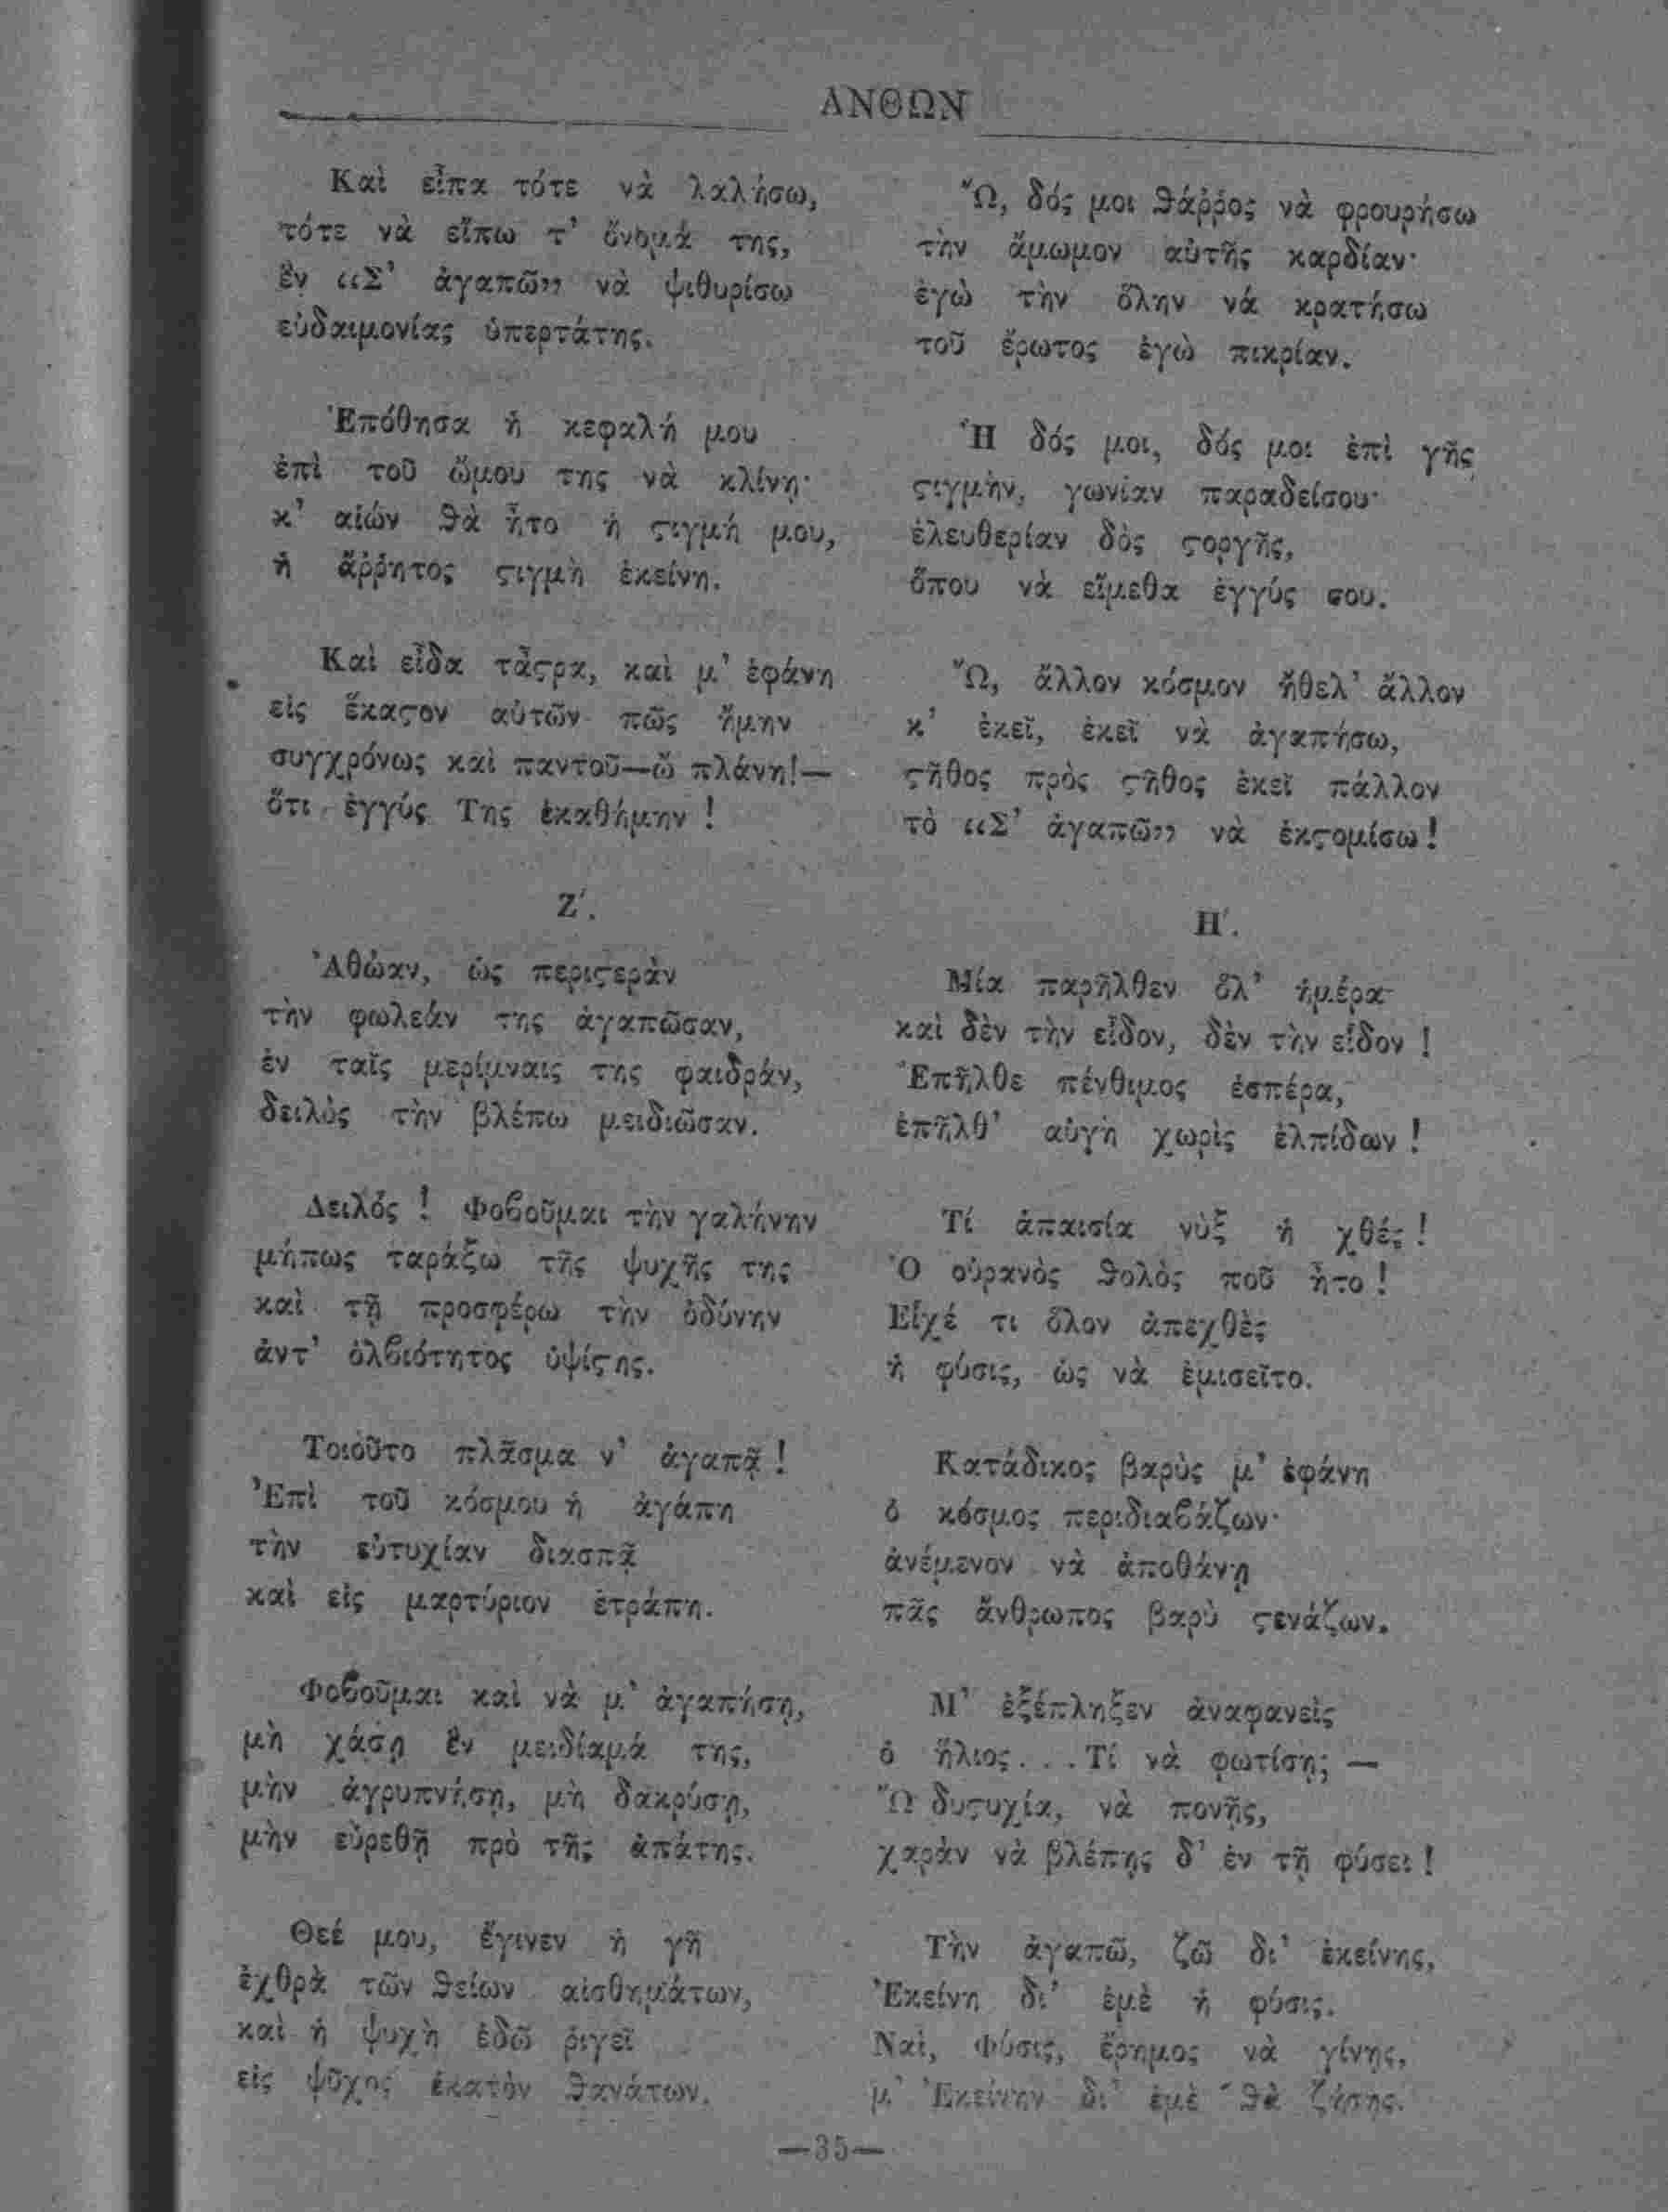 ΑΝΘΩΝ
Καὶ εἶπα τότε νὰ λαλήσω,
τότε νὰ εἴπω τ’ ὄνομά της,
ἓν “Σ’ ἀγαπῶ” νὰ ψιθυρίσω
εὐδαιμονίας ὑπερτάτης.
Ἐπόθησα ἡ κεφαλή μου
ἐπὶ τοῦ ὤμου της νὰ κλίνῃ·
κ’ αἰών θὰ ἦτο ἡ ϛιγμή μου,
ἡ ἄῤῥητος ϛιγμὴ ἐκείνη.
Καὶ εἶδα τἆϛρα, καὶ μ’ ἐφάνη
εἰς ἕκαϛον αὐτῶν πῶς ἤμην
συγχρόνως καὶ παντοῦ—ὢ πλάνη!—
ὅτι ἐγγύς Της ἐκαθήμην !
Ζ′.
Ἀθώαν, ὡς περιϛερὰν
τὴν φωλεάν της ἀγαπῶσαν,
ἐν ταῖς μερίμναις της φαιδράν,
δειλὸς τὴν βλέπω μειδιῶσαν.
Δειλός ! Φοϐοῦμαι τὴν γαλήνην
μήπως ταράξω τῆς ψυχῆς της
καὶ τῇ προσφέρω τὴν ὀδύνην
ἀντ’ ὀλϐιότητος ὑψίϛης.
Τοιοῦτο πλᾶσμα ν’ ἀγαπᾷ !
Ἐπὶ τοῦ κόσμου ἡ ἀγάπη
τὴν εὐτυχίαν διασπᾷ
καὶ εἰς μαρτύριον ἐτράπη.
Φοϐοῦμαι καὶ νὰ μ’ ἀγαπήσῃ,
μὴ χάσῃ ἓν μειδίαμά της,
μὴν ἀγρυπνήσῃ, μὴ δακρύσῃ,
μὴν εὑρεθῇ πρὸ τῆς ἀπάτης.
Θεέ μου, ἔγινεν ἡ γῆ
ἐχθρὰ τῶν θείων αἰσθημάτων,
καὶ ἡ ψυχὴ ἐδῶ ῥιγεῖ
εἰς ψῦχος ἑκατὸν θανάτων.
Ὢ, δός μοι θάῤῥος νὰ φρουρήσω
τὴν ἄμωμον αὐτῆς καρδίαν·
ἐγὼ τὴν ὅλην νά κρατήσω
τοῦ ἔρωτος ἐγὼ πικρίαν.
Ἢ δός μοι, δός μοι ἐπὶ γῆς
ϛιγμὴν, γωνίαν παραδείσου·
ἐλευθερίαν δὸς ϛοργῆς,
ὅπου νὰ εἴμεθα ἐγγύς σου.
Ὢ, ἄλλον κόσμον ἤθελ’ ἄλλον
κ’ ἐκεῖ, ἐκεῖ νὰ ἀγαπήσω,
ϛῆθος πρὸς ϛῆθος ἐκεῖ πάλλον
τὸ “Σ’ ἀγαπῶ” νὰ ἐκϛομίσω !
Η′.
Μία παρῆλθεν ὅλ’ ἡμέρα
καὶ δὲν τὴν εἶδον, δὲν τὴν εἶδον !
Ἐπῆλθε πένθιμος ἑσπέρα,
ἐπῆλθ’ αὐγὴ χωρὶς ἐλπίδων !
Τί ἀπαισία νὺξ ἡ χθές !
Ὁ οὐρανὸς θολὸς ποῦ ἦτο !
Εἶχέ τι ὅλον ἀπεχθὲς
ἡ φύσις, ὡς νὰ ἐμισεῖτο.
Κατάδικος βαρὺς μ’ ἐφάνη
ὁ κόσμος περιδιαϐάζων·
ἀνέμενον νὰ ἀποθάνῃ
πᾶς ἄνθρωπος βαρὺ ϛενάζων.
Μ’ ἐξέπληξεν ἀναφανεὶς
ὁ ἥλιος. . . Τί νὰ φωτίσῃ; —
Ὢ δυϛυχία, νὰ πονῇς,
χαρὰν νὰ βλέπῃς δ’ ἐν τῇ φύσει !
Τὴν ἀγαπῶ, ζῶ δι’ ἐκείνης,
Ἐκείνη δι’ ἐμὲ ἡ φύσις.
Ναὶ, Φύσις, ἔρημος νὰ γίνῃς,
μ’ Ἐκείνην δι’ ἐμὲ θὰ ζήσῃς.
—35—